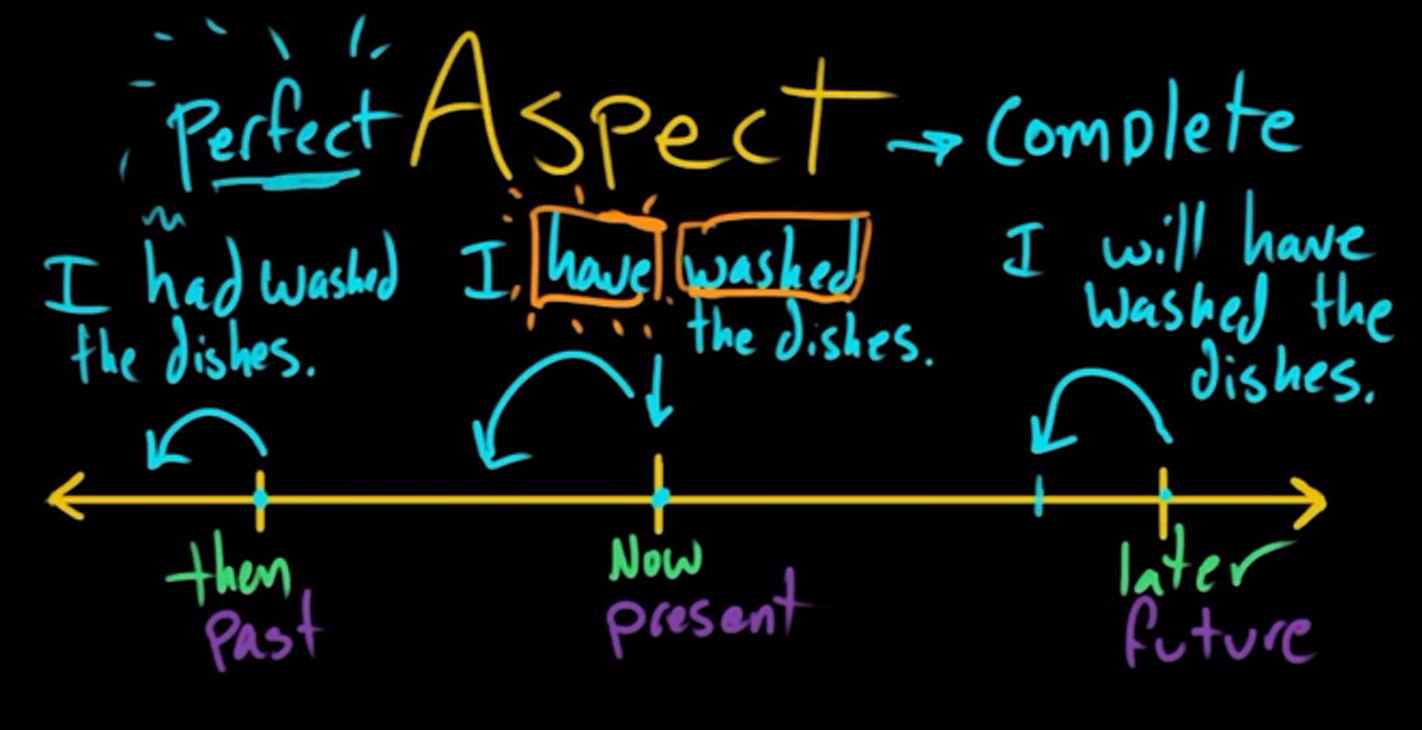 Perfect Aspect → Complete
I had washed
the dishes.
I have washed
the dishes.
I will have
washed the
dishes.
then
past
Now
present
later
future